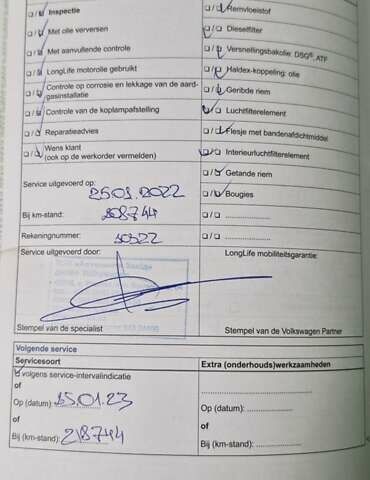 Inspectie
Met olie verversen
Met aanvullende controle
LongLife motorolie gebruikt
Controle op corrosie en lekkage van de aard-
gasinstallatie
Controle van de koplampafstelling
Reparatieadvies
Wens klant
(ook op de werkorder vermelden)
Remvloeistof
Dieselfilter
Versnellingsbakolie: DSG®, ATF
Haldex-koppeling: olie
Geribde riem
Luchtfilterelement
Flesje met bandenafdichtmiddel
Interieurluchtfilterelement
Getande riem
Bougies
Service uitgevoerd op:
25.01.2022
Bij km-stand: 208744
Rekeningnummer: 10522
Service uitgevoerd door:
LongLife mobiliteitsgarantie:
Stempel van de specialist
Stempel van de Volkswagen Partner
Volgende service
Servicesoort
volgens service-intervalindicatie
of
Op (datum): 25.01.23
of
Bij (km-stand): 218744
Extra (onderhouds)werkzaamheden
of
Op (datum):
of
Bij (km-stand):